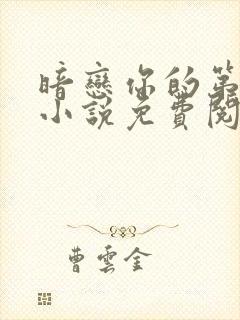 暗戀你的第
小說免費閱
曹雲金